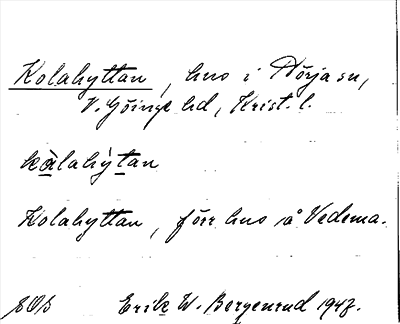 Kolahyttan, hus i Norra sn,
V. Göinge hd, Krist. l.
kålahytan
Kolahyttan, förr hus å Vedema.
SOS Erik W. Bergenrud 1947.